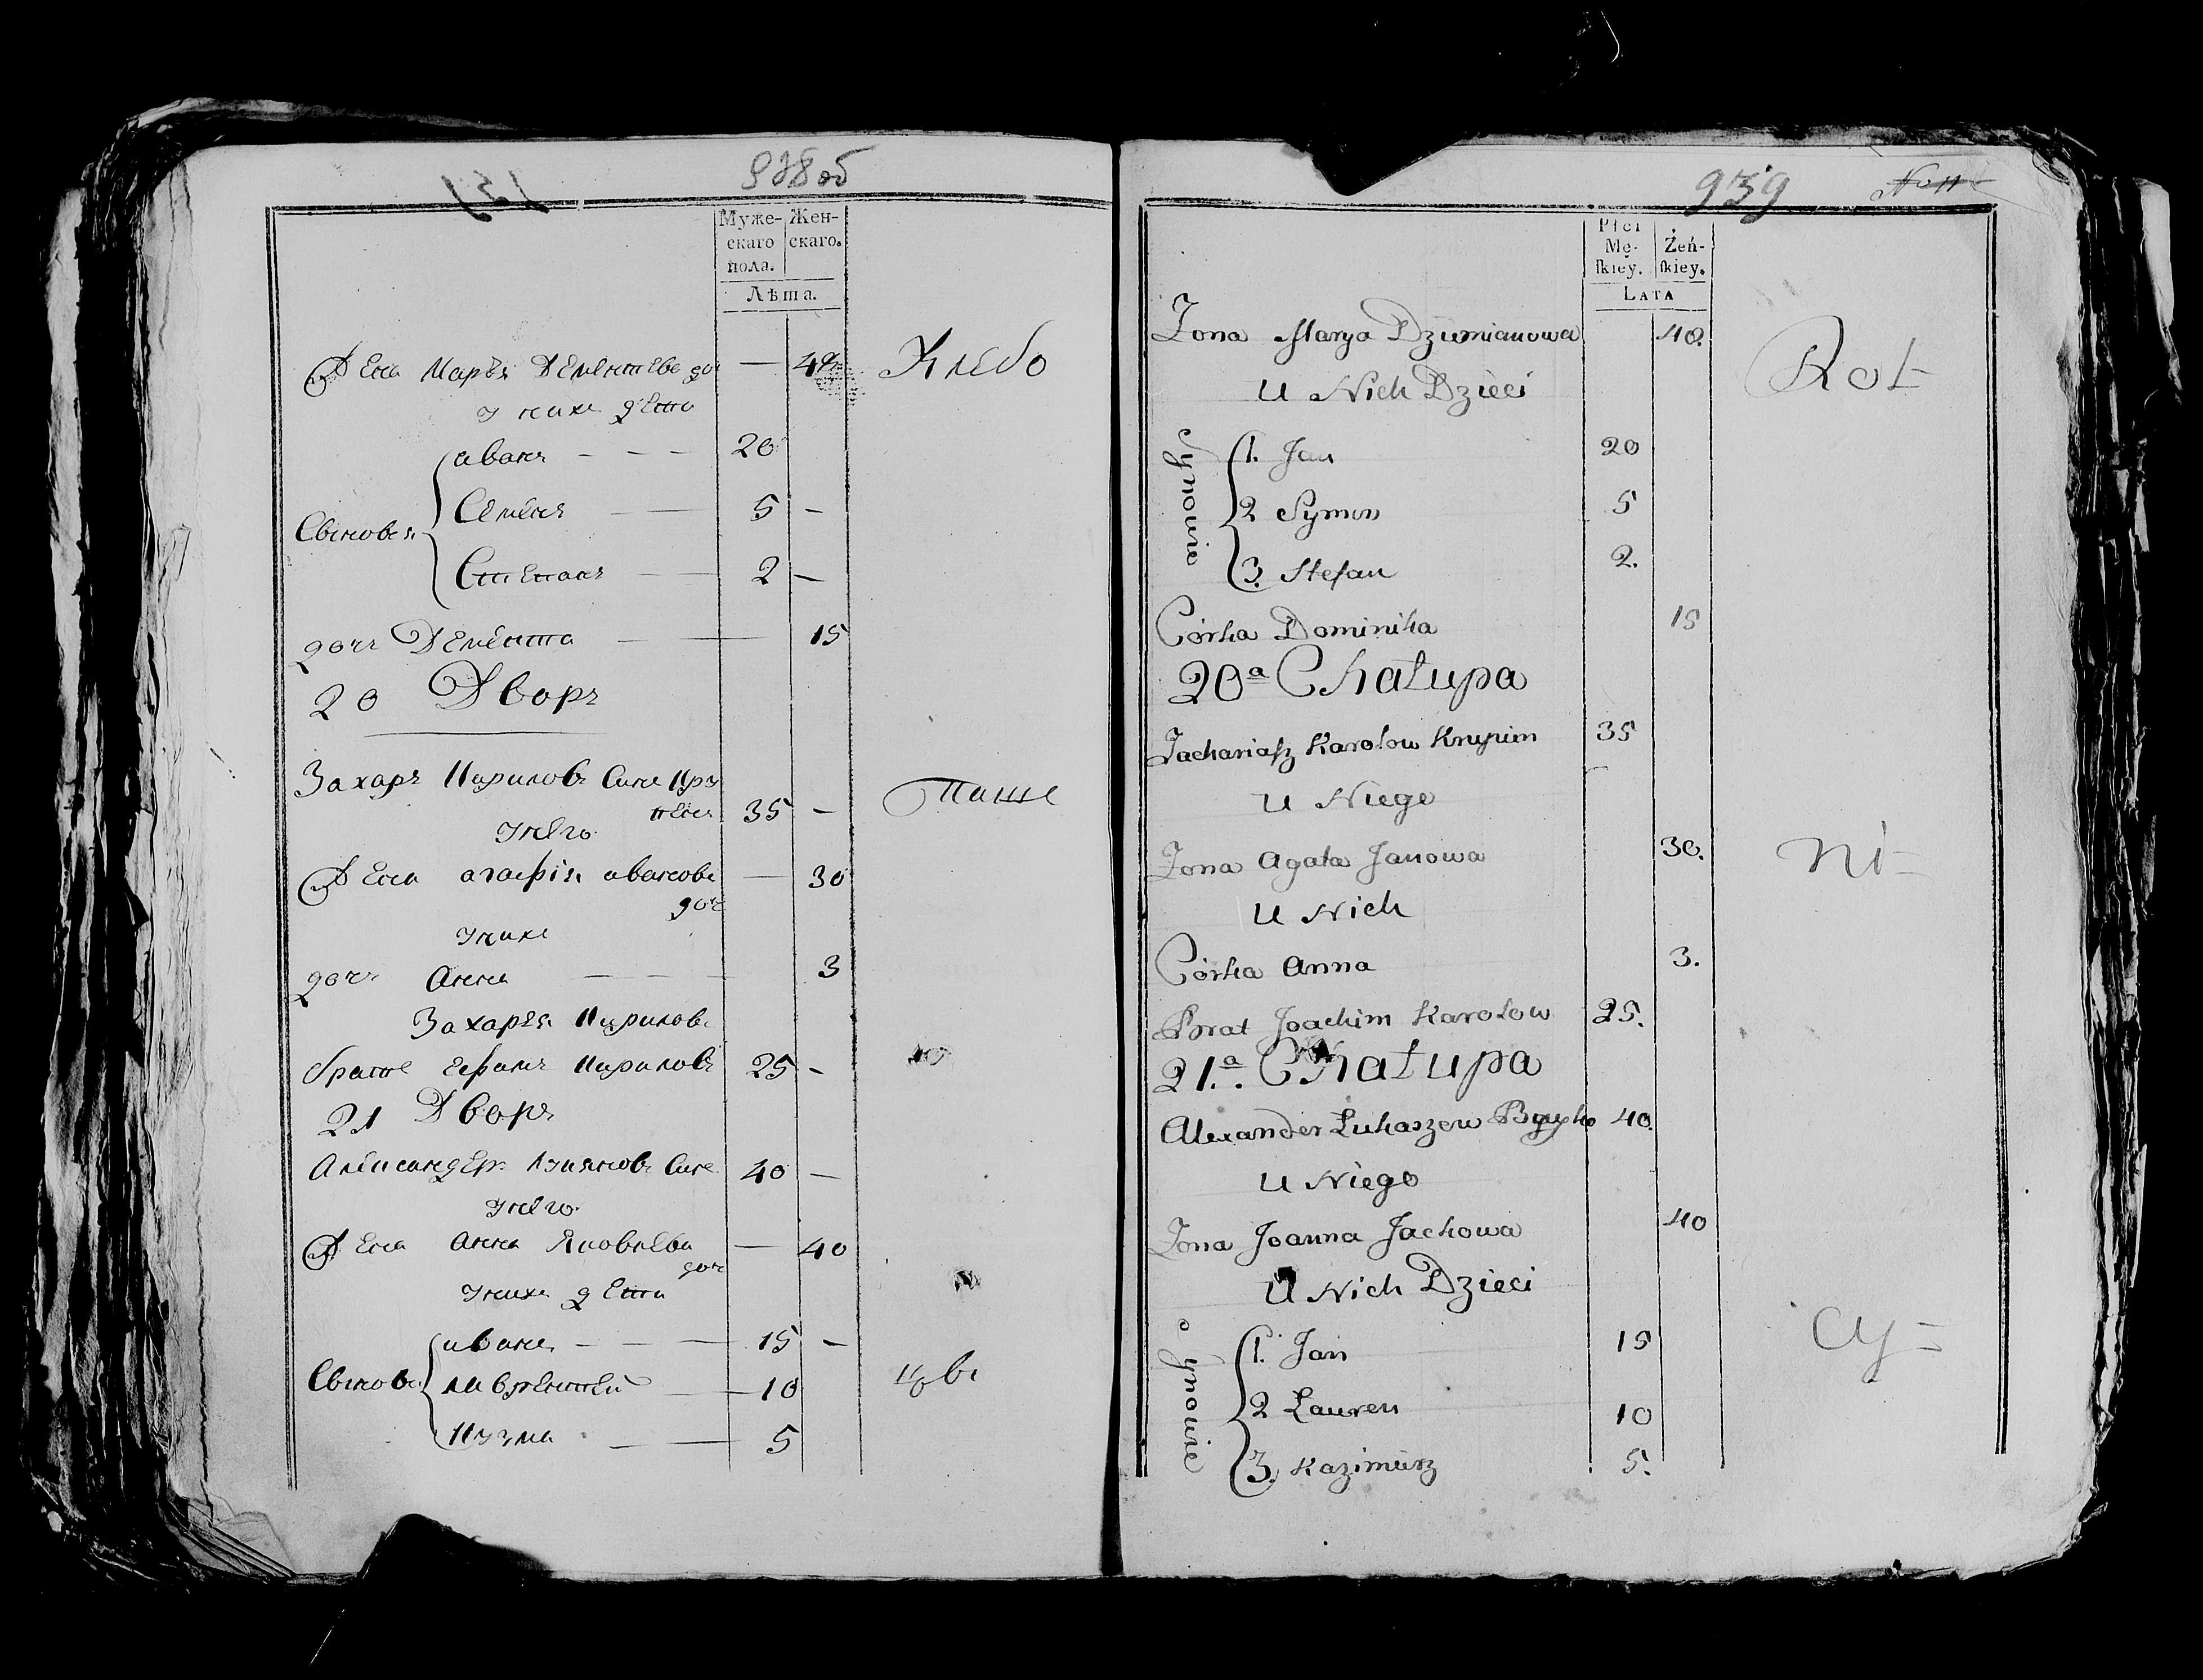 938об
Муже- Жен-
скаго скаго.
пола.
Лѣта.
Жена Марья Дементьева доч — 40 Хлебо
У них дети
Сыновья
Иванъ — — — 20
Семенъ — — 5 —
Степанъ — — 2 —
дочь — — 15
20 Дворъ
Захаръ Кириловъ Сынъ 35 — Паше
У него
Жена Агафія Иванова — 30
доч
У них
дочь Анна — — — 3
Захарья Кирилова
братъ Ефимъ Кириловъ 25 —
21 Дворъ
Александеръ Сынъ 40 —
У него
Жена Анна Яковлева — 40
доч
У них дети
Сынове
Иванъ — — 15 —
Лаврентей — — 10
Кузма — — 5
939
Płci
Mę- Żeń-
skiey. skiey.
LATA
Żona Marya Dziemianowa 40. Rot-
U Nich Dzieci
Synowie
1. Jan 20
2 Symon 5
3. Stefan 2.
Córka Dominika 15
20a Chałupa
Zachariasz Karolow Krupien 35
U Niego
Żona Agata Janowa 30. ni-
U Nich
Córka Anna 3.
Brat Joachim Karolow 25.
21.a Chałupa
Alexander Łukaszew 40.
U Niego
Żona Joanna Jackowa 40
U Nich Dzieci
Synowie
1. Jan 15 cy-
2 Lauren 10
3. Kazimierz 5.